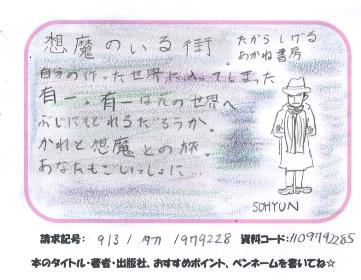 想魔のいる街 たからしげる
あかね書房
自分の作った世界に入ってしまった
有一。有一は元の世界へ
ぶじにもどれるだろうか。
かれと想魔との旅。
あなたもごいっしょに…
SOHYUN
請求記号: 913/タカ/979228 資料コード:1109792285
本のタイトル・著者・出版社、おすすめポイント、ペンネームを書いてね☆